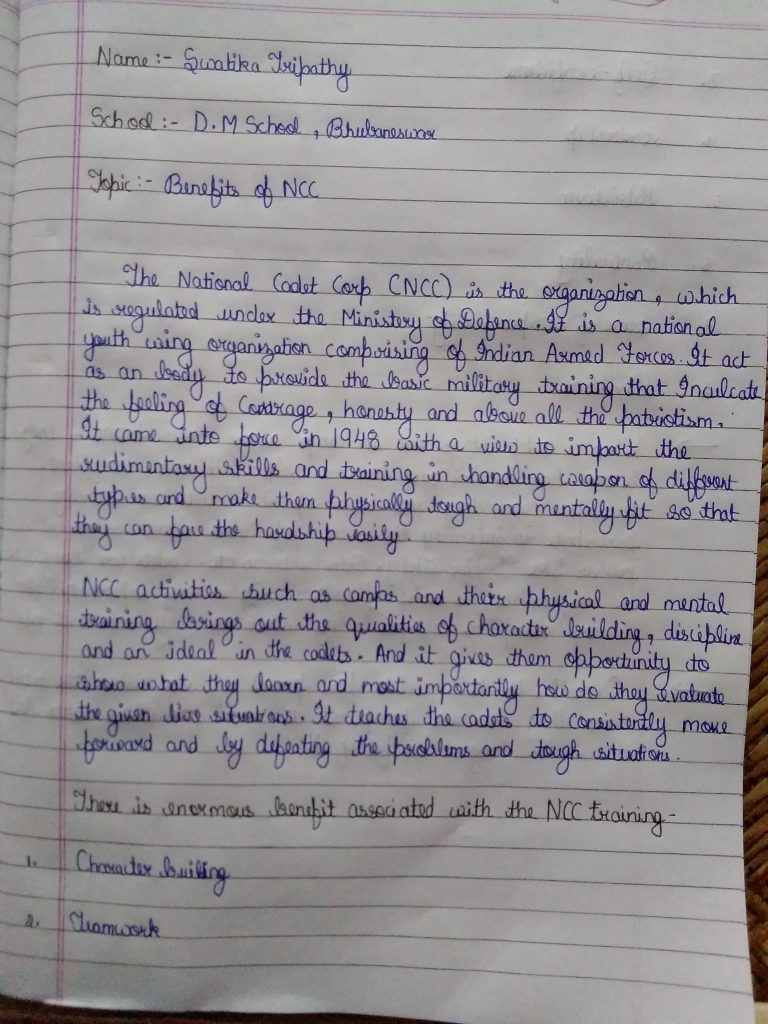 Name :- Swatika Tripathy
School :- D.M School , Bhubaneswar
Topic :- Benefits of NCC
The National Cadet Corp (NCC) is the organization, which
is regulated under the Ministery of Defence. It is a national
youth wing organization comprising of Indian Armed Forces. It act
as an body to provide the basic military training that Inculcate
the feeling of Courage, honesty and above all the patriotism.
It came into force in 1948 with a view to impart the
rudimentary skills and training in handling weapon of different
types and make them physically tough and mentally fit so that
they can face the hardship easily.
NCC activities such as camps and their physical and mental
training brings out the qualities of character building, discipline
and an ideal in the cadets. And it gives them opportunity to
show what they learn and most importantly how do they evaluate
the given live situations. It teaches the cadets to consistently move
forward and by defeating the problems and tough situations.
There is enormous benefit associated with the NCC training -
1. Character builing
2. Teamwork